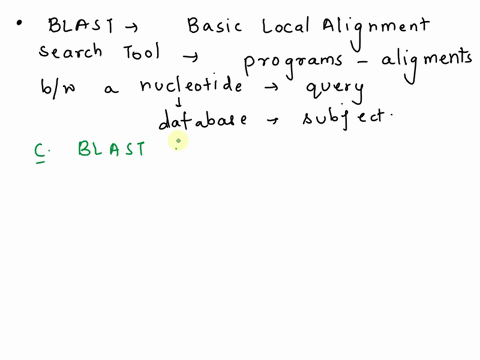 • BLAST → Basic Local Alignment
search Tool → programs - aligments
b/w a nucleotide → query
↓
database → subject.
C. BLAST :